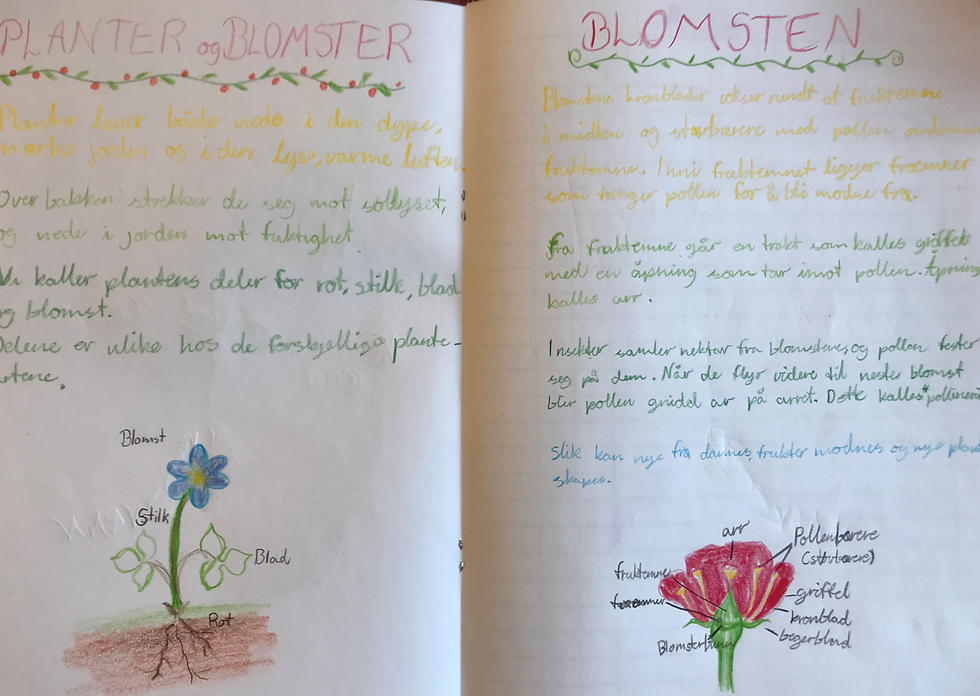 PLANTER og BLOMSTER
Planter lever både nede i den dype,
mørke jorden og i den lyse, varme luften.
Over bakken strekker de seg mot sollyset,
og nede i jorden mot fuktighet.
Vi kaller plantens deler for rot, stilk, blad
og blomst.
Delene er ulike hos de forskjellige plante-
artene.
Blomst
Stilk
Blad
Rot
BLOMSTEN
Blomstens kronblader vokser rundt et fruktemne
i midten og støvbærere med pollen omkranser
fruktemne. Inni fruktemnet ligger frøemner
som trenger pollen for å bli modne frø.
fra fruktemne går en trakt som kalles griffel
med en åpning som tar imot pollen. Åpning
kalles arr.
Insekter samler nektar fra blomstene, og pollen fester
seg på dem. Når de flyr videre til neste blomst
blir pollen gnidd av på arret. Dette kalles "pollinering
Slik kan nye frø dannes, frukter modnes og nye plant
skapes.
arr
Pollenbærere
(støvbærere)
fruktemne
griffel
kronblad
begerblad
Blomsterbunn